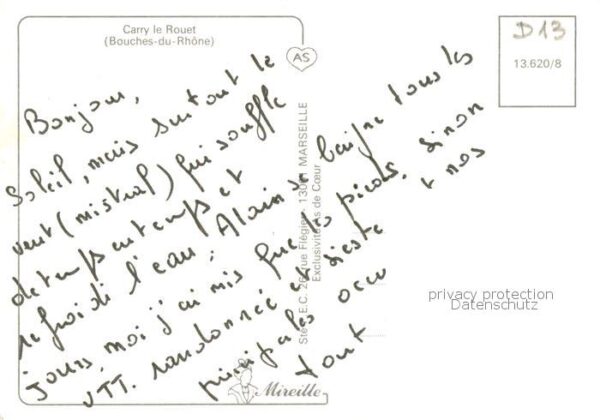 Carry le Rouet
(Bouches-du-Rhône)
AS
D13
13.620/8
Bonjour,
Soleil, mais surtout le
vent (mistral) qui souffle
de temps en temps et
refroidi l'eau. Alain se baigne tous les
jours, moi j'ai mis que les pieds. Sinon
VTT. randonnée et sieste + nos
principales occu
tout
13001 MARSEILLE
Exclusivités As de Cœur
Mireille
privacy protection
Datenschutz